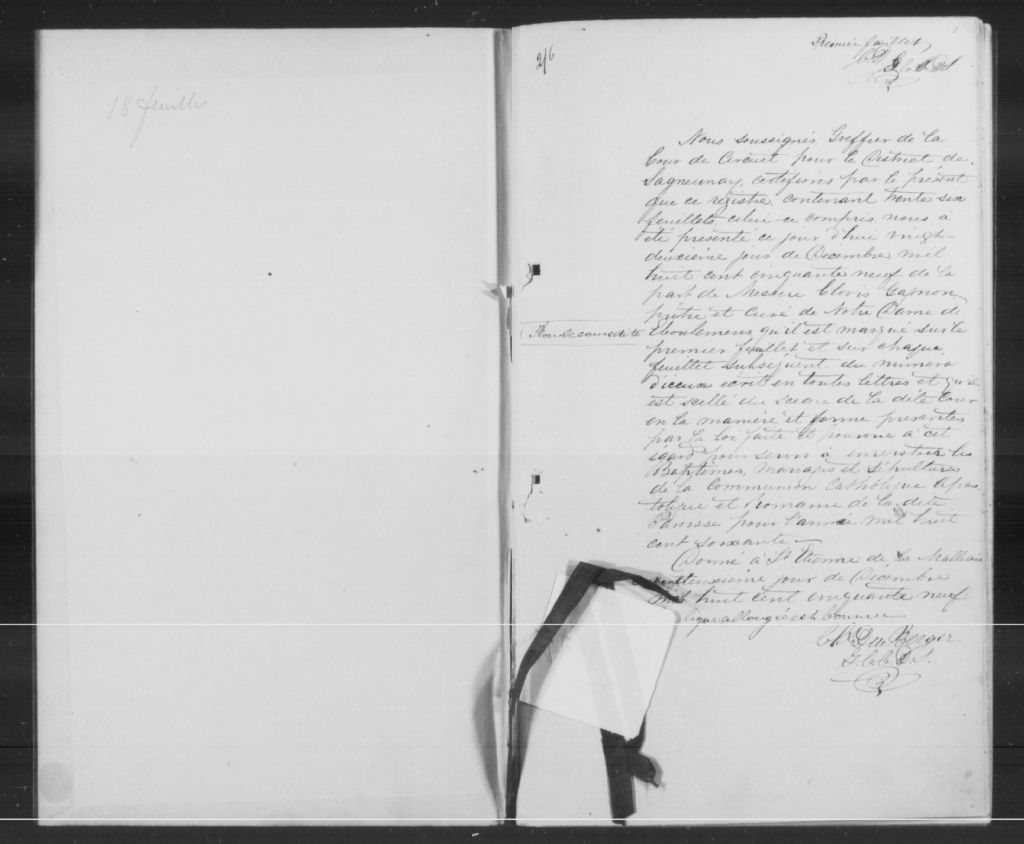 18 feuillets
2/6
Premier feuillet
G.C.C.D.S.
Nous soussignés, Greffier de la
Cour de Circuit pour le District de
Saguenay, certifions par le présent
que ce régistre, contenant trente six
feuillets, celui-ce compris nous à
été presenté ce jour d'hui vingt-
deuxième jour de Décembre mil
huit cent cinquante neuf de la
part de Messire Clovis Gagnon
prêtre et Curé de Notre Dame de
Eboulemens, qu'il est marqué sur le
premier feuillet et sur chaque
feuillet subséquent du numéro
d'iceux écrit en toutes lettres et qu'il
est scellé du sceau de la dite Cour
en la manière et forme prescrites
par la loi faite et pourvue à cet
égard pour servir à enregistrer les
Baptêmes, Mariages et Sépultures
de la Communion Catholique Apos-
tolique et Romaine de la dite
Paroisse pour l'année mil huit
cent soixante—
Donné à St Etienne de la Malbaie
jour de Décembre
mil huit cent cinquante neuf
ligne allongée est bonne
Chs Du Berger
G.C.C.D.S.